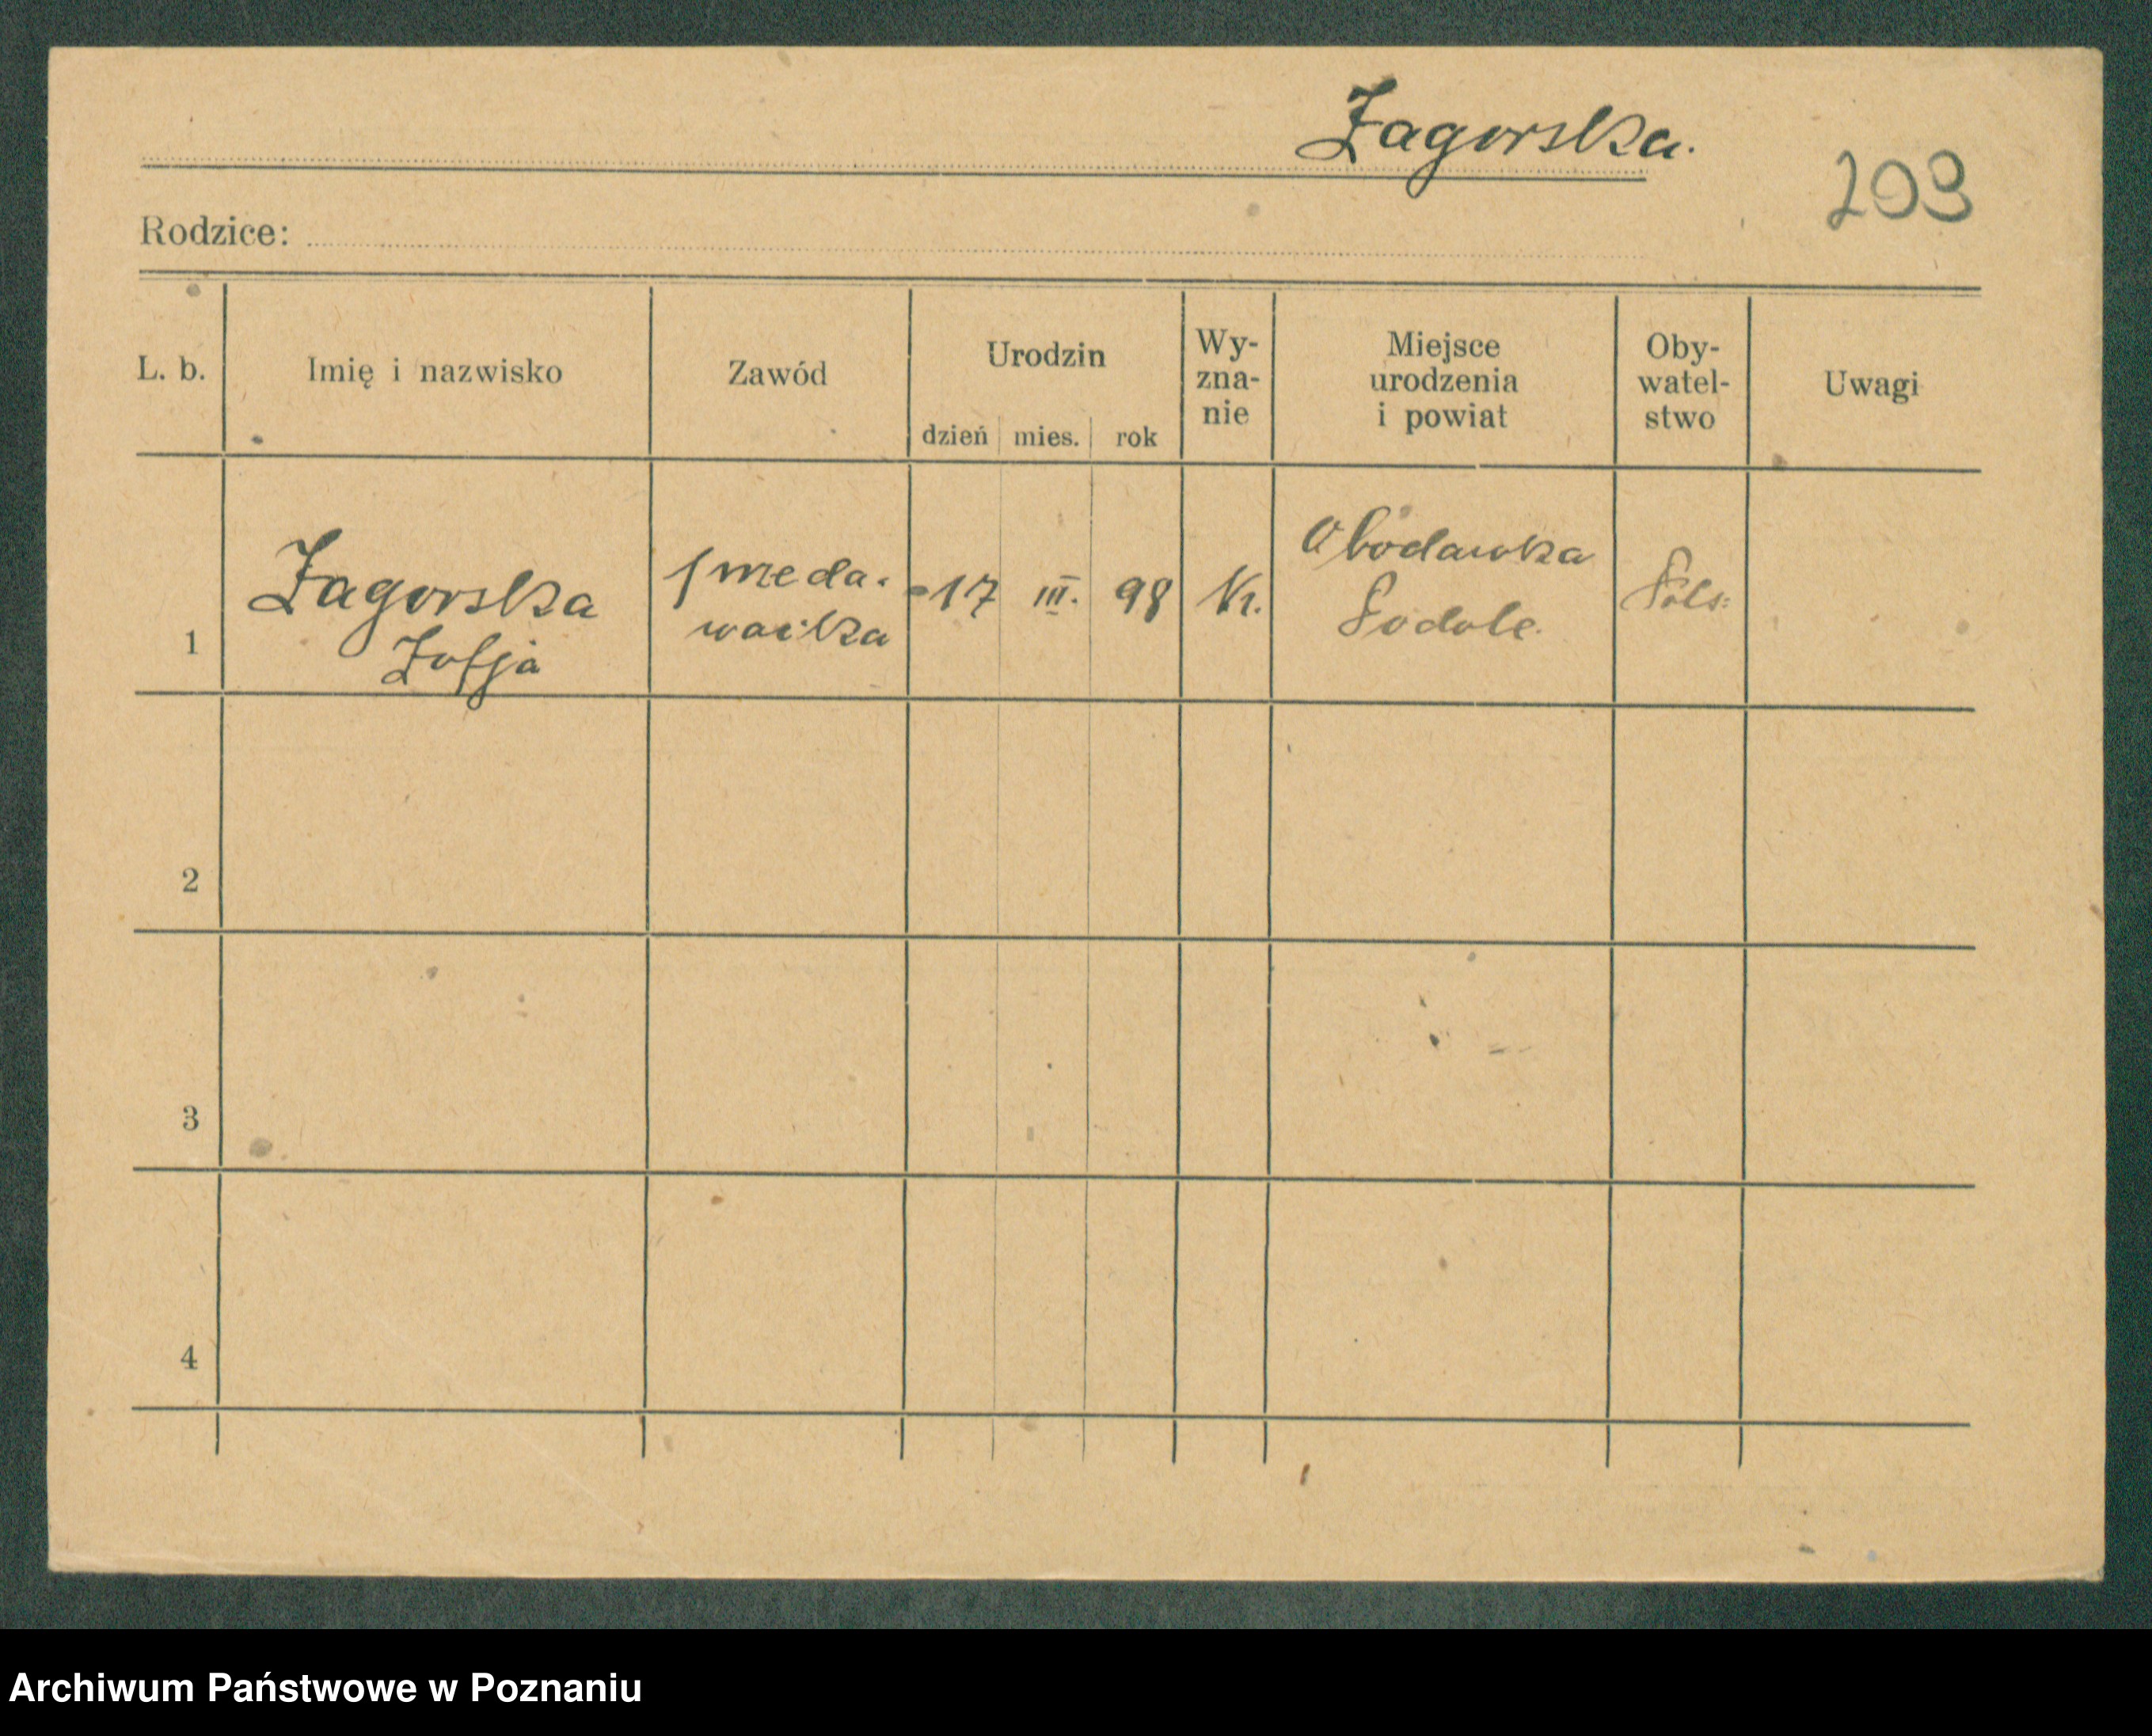 Zagorska.
203
Rodzice:
L. b.
Imię i nazwisko
Zawód
Urodzin
dzień mies. rok
Wy-
zna-
nie
Miejsce
urodzenia
i powiat
Oby-
watel-
stwo
Uwagi
1
Zagorska
Zofja
17 III. 98
Obodawka
Podole.
Pols:
2
3
4
Archiwum Państwowe w Poznaniu